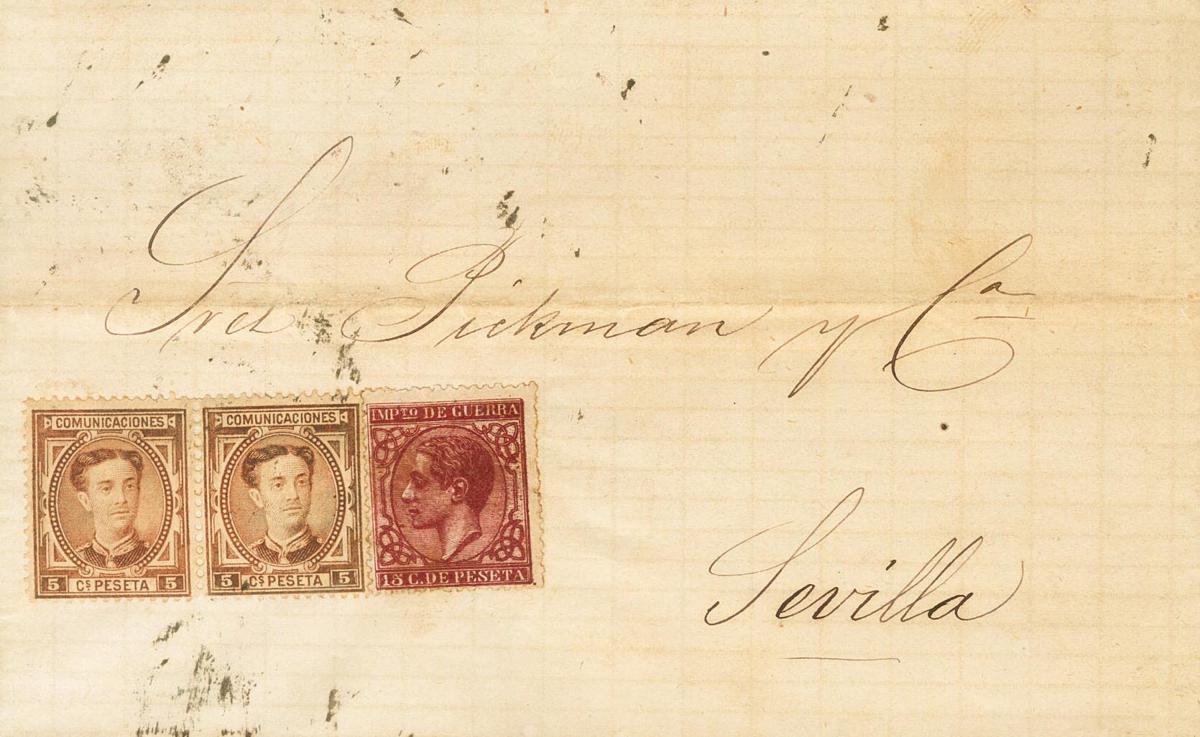 Sres Pickman y Cª
COMUNICACIONES
5 Cs PESETA 5
COMUNICACIONES
5 Cs PESETA 5
IMPTO DE GUERRA
15 C. DE PESETA
Sevilla